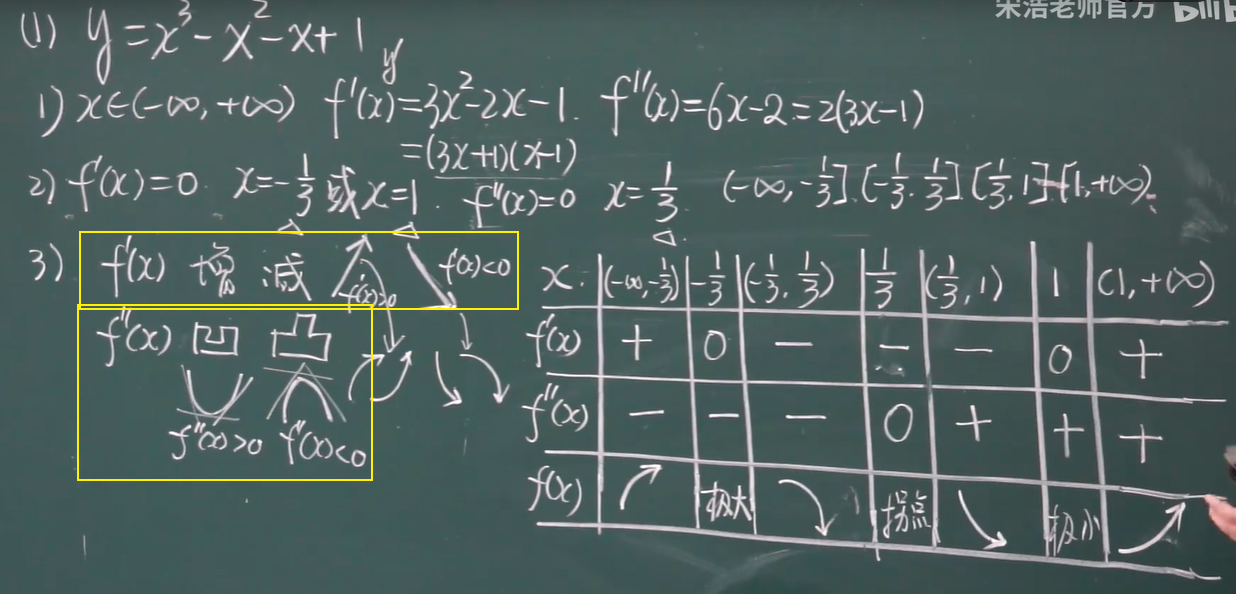 宋浩老师官方 bilib
(1) y=x³-x²-x+1
y'
1) x∈(-∞,+∞) f'(x)=3x²-2x-1. f''(x)=6x-2=2(3x-1)
=(3x+1)(x-1)
2) f'(x)=0. x=-1/3 或 x=1. f''(x)=0 x=1/3 (-∞,-1/3].[-1/3,1/3].[1/3,1].[1,+∞).
3) f'(x) 增 减 f'(x)>0 f'(x)<0
f''(x) 凹 凸
f''(x)>0 f''(x)<0
x. (-∞,-1/3) -1/3 (-1/3,1/3) 1/3 (1/3,1) 1 (1,+∞)
f'(x) + 0 - - - 0 +
f''(x) - - - 0 + + +
f(x) 极大 拐点 极小